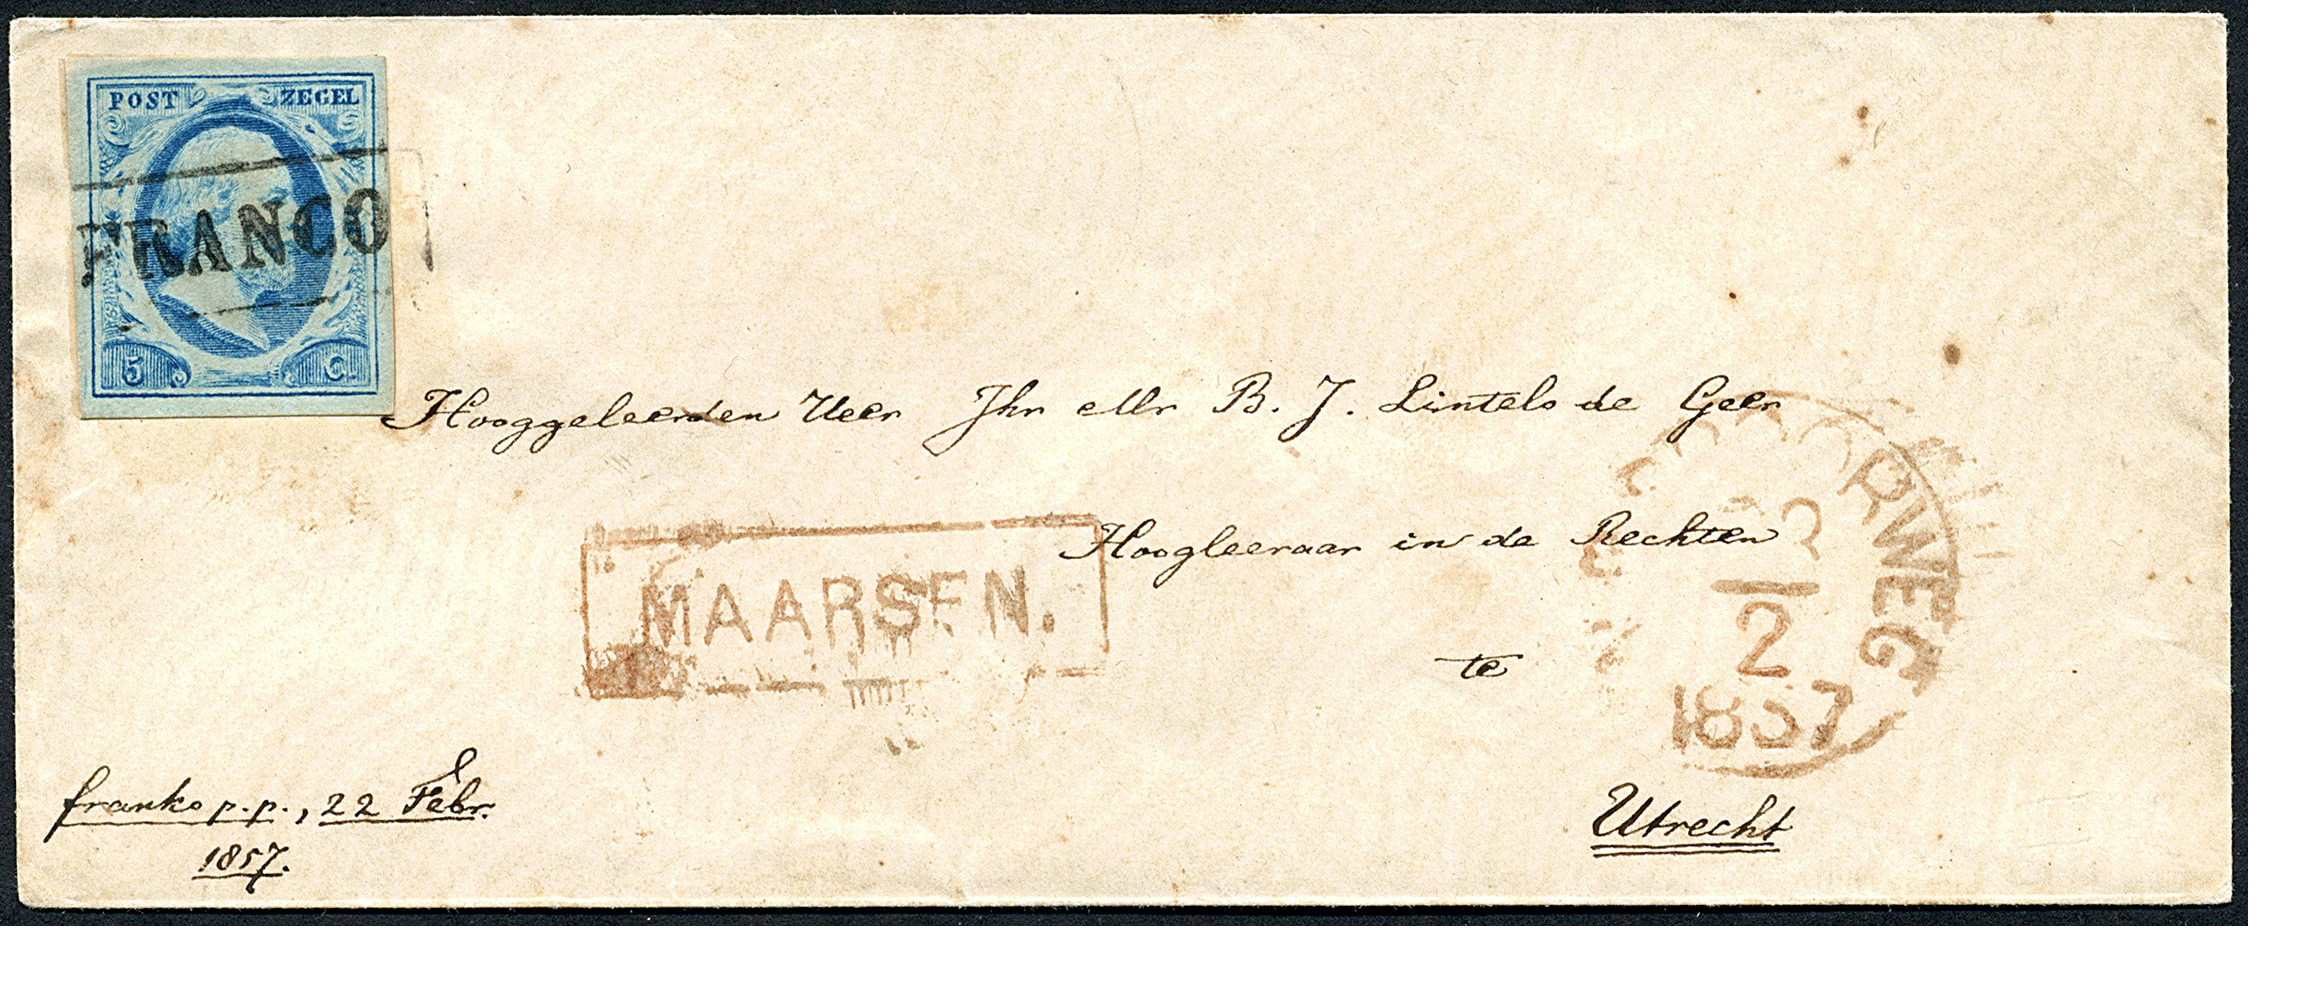 POST ZEGEL
FRANCO
5 C.
Hooggeleerden Heer Jhr Mr B. J. Lintelo de Geer
Hoogleeraar in de Rechten
te
Utrecht
MAARSEN.
SPOORWEG
2
1857
franko p.p., 22 Febr.
1857.